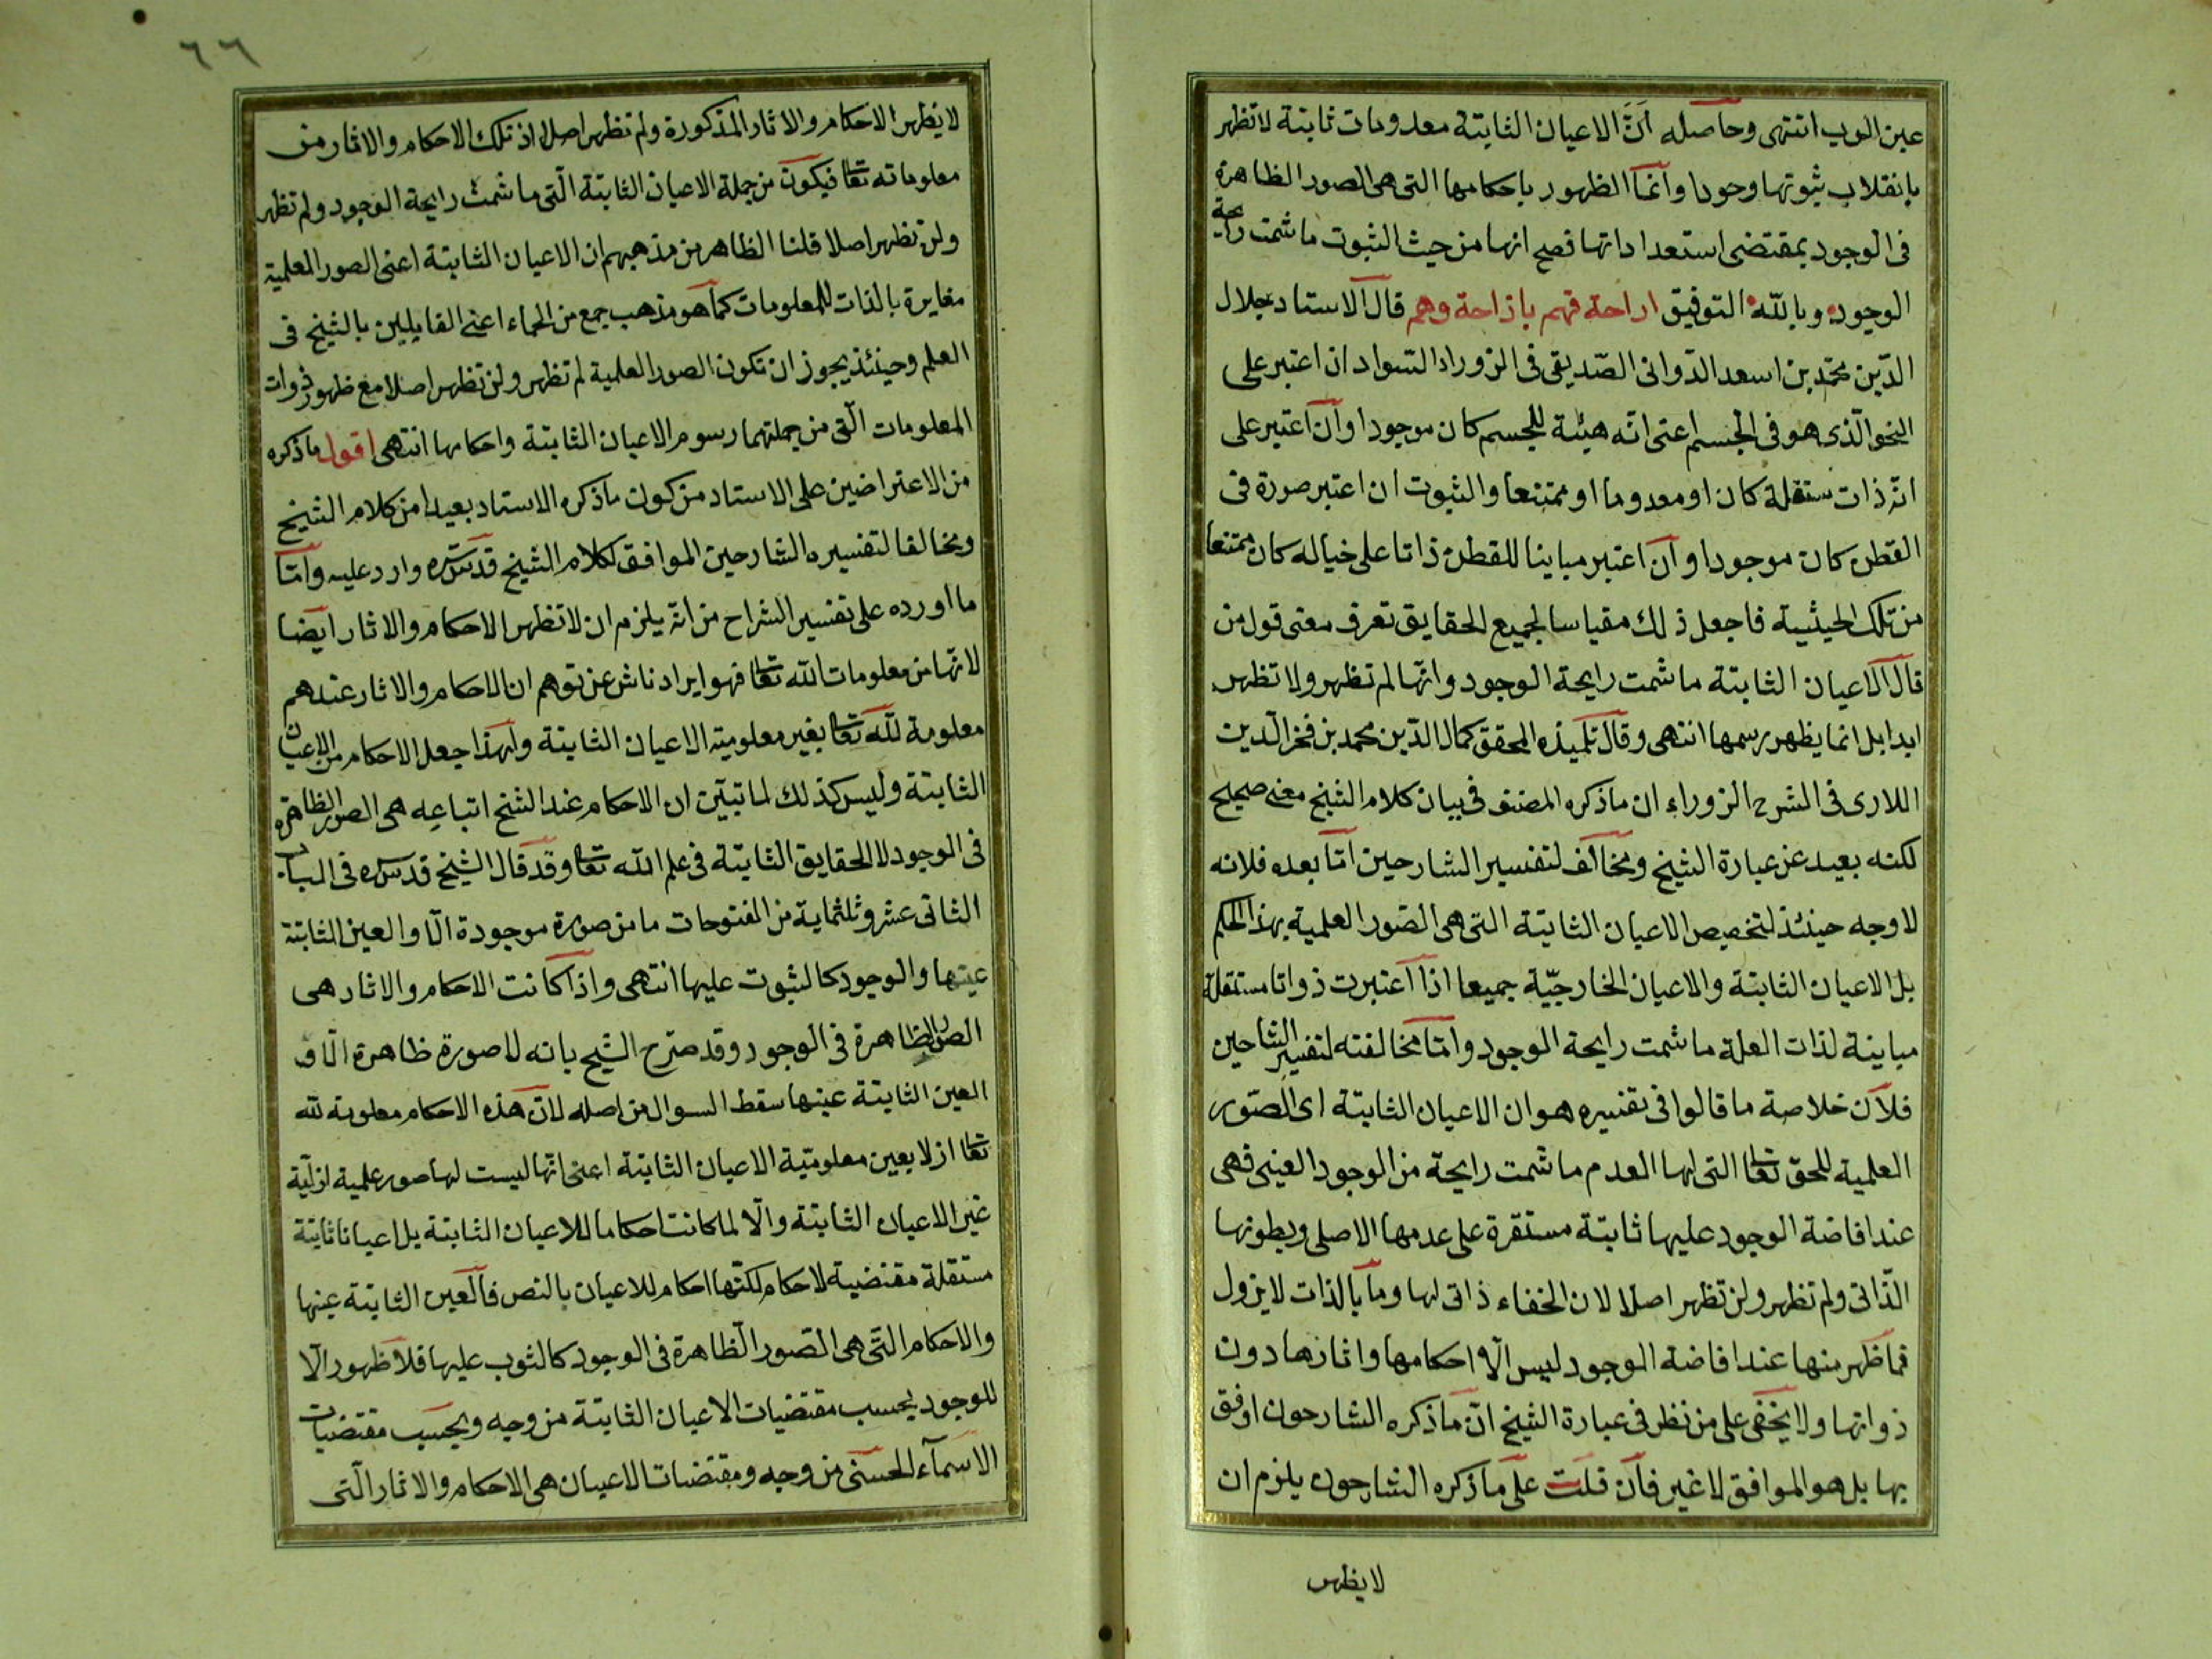 عين الثوب انتهى وحاصله أنّ الاعيان الثابتة معدومات ثابتة لا تظهر
بانقلاب ثبوتها وجودا وانما الظهور باحكامها التى هى الصور الظاهرة
فى الوجود بمقتضى استعداداتها فصح انها من حيث الثبوت ما شمت رايحة
الوجود وبالله التوفيق اراحة فهم بازاحة وهم قال الاستاد جلال
الدّين محمّد بن اسعد الدّوانى الصّديقى فى الزوراء السّواد ان اعتبر على
النحو الّذى هو فى الجسم اعنى انّه هيئة للجسم كان موجودا وان اعتبر على
انّه ذات مستقلة كان او معدوما او ممتنعا والثبوت ان اعتبر صورة فى
القطن كان موجودا وان اعتبر مباينا للقطن ذاتا على خياله كان ممتنعا
من تلك الحيثية فاجعل ذلك مقياسا لجميع الحقايق تعرف معنى قول من
قال الاعيان الثابتة ما شمت رايحة الوجود وانّها لم تظهر ولا تظهر
ابدا بل انما يظهر رسمها انتهى وقال تلميذه المحقق كمال الدّين محمد بن فخر الدّين
اللارى فى الشرح الزوراء ان ما ذكره المصنف فى بيان كلام الشيخ معنى صحيح
لكنه بعيد عن عبارة الشيخ ومخالف لتفسير الشارحين امّا بعده فلانه
لا وجه حينئذ لتخصيص الاعيان الثابتة التى هى الصّور العلمية بهذا الحكم
بل الاعيان الثابتة والاعيان الخارجيّة جميعا اذا اعتبرت ذواتا مستقلة
مباينة لذات العلة ما شمت رايحة الوجود وامّا مخالفته لتفسير الشارحين
فلان خلاصة ما قالوا فى تفسيره هو ان الاعيان الثابتة اى الصّور
العلمية للحق تعا التى لها العدم ما شمت رايحة من الوجود العينى فهى
عند افاضة الوجود عليها ثابتة مستقرة على عدمها الاصلى وبطونها
الذّاتى ولم تظهر ولن تظهر اصلا لان الخفاء ذاتى لها وما بالذات لا يزول
فما ظهر منها عند افاضة الوجود ليس الّا احكامها واثارها دون
ذواتها ولا يخفى على من نظر فى عبارة الشيخ انّ ما ذكره الشارحون اوفق
بها بل هو الموافق لا غير فان قلت على ما ذكره الشارحون يلزم ان
لا يظهر
٦٦
لا يظهر الاحكام والاثار المذكورة ولم تظهر اصلا اذ تلك الاحكام والاثار من
معلوماته تعا فيكون من جملة الاعيان الثابتة الّتى ما شمت رايحة الوجود ولم تظهر
ولن تظهر اصلا قلنا الظاهر من مذهبهم ان الاعيان الثابتة اعنى الصور العلمية
مغايرة بالذات للمعلومات كما هو مذهب جمع من الحكماء اعنى القايلين بالشبح فى
العلم وحينئذ يجوز ان تكون الصور العلمية لم تظهر ولن تظهر اصلا مع ظهور ذوات
المعلومات الّتى من جملتها رسوم الاعيان الثابتة واحكامها انتهى اقول ما ذكره
من الاعتراضين على الاستاد من كون ما ذكره الاستاد بعيدا من كلام الشيخ
ومخالفا لتفسيره الشارحين الموافق لكلام الشيخ قدس سره وارد عليه وامّا
ما اورده على تفسير الشراح من انّه يلزم ان لا تظهر الاحكام والاثار ايضا
لانّها من معلومات الله تعا فهو ايراد ناش عن توهم ان الاحكام والاثار عندهم
معلومة لله تعا بغير معلومية الاعيان الثابتة ولهذا جعل الاحكام من الاعيان
الثابتة وليس كذلك لما تبيّن ان الاحكام عند الشيخ اتباعه هى الصور الظاهرة
فى الوجود لا الحقايق الثابتة فى علم الله تعا وقد قال الشيخ قدس سره فى الباب
الثانى عشر وثلثماية من الفتوحات ما من صورة موجودة الّا والعين الثابتة
عينها والوجود كالثوب عليها انتهى واذا كانت الاحكام والاثار هى
الصور الظاهرة فى الوجود وقد صرّح الشيخ بانه لا صورة ظاهرة الّا و
العين الثابتة عينها سقط السوال من اصله لانّ هذه الاحكام معلومة لله
تعا ازلا بعين معلوميّة الاعيان الثابتة اعنى انّها ليست لها صور علمية ازليّة
غير الاعيان الثابتة والّا لما كانت احكاما للاعيان الثابتة بل اعيانا ثابتة
مستقلة مقتضية لاحكام لكنّها احكام للاعيان بالنص فالعين الثابتة عينها
والاحكام التّى هى الصّور الظّاهرة فى الوجود كالثوب عليها فلا ظهور الّا
للوجود بحسب مقتضيات الاعيان الثابتة من وجه وبحسب مقتضيات
الاسمآء الحسنى من وجه ومقتضيات الاعيان هى الاحكام والاثار الّتى